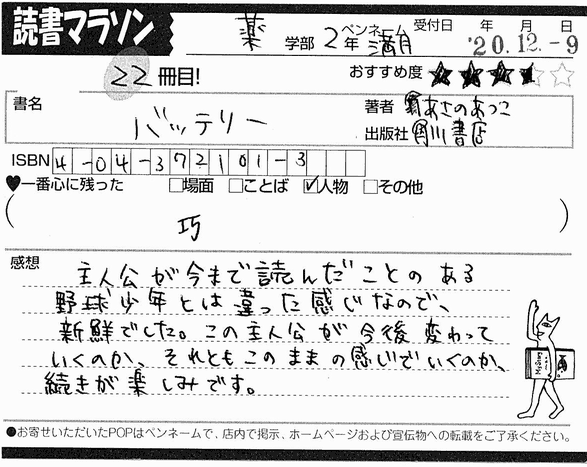 読書マラソン
薬 学部 2年 ペンネーム 満月 受付日 年 月 日
'20.12.-9
22冊目! おすすめ度
書名 バッテリー 著者 あさのあつこ
出版社 角川書店
ISBN 4-04-372101-3
♥一番心に残った □場面 □ことば ☑人物 □その他
( 巧 )
感想
主人公が今まで読んだことのある
野球少年とは違った感じなので、
新鮮でした。この主人公が今後変わって
いくのか、それともこのままの感じでいくのか、
続きが楽しみです。
●お寄せいただいたPOPはペンネームで、店内で掲示、ホームページおよび宣伝物への転載をご了承ください。